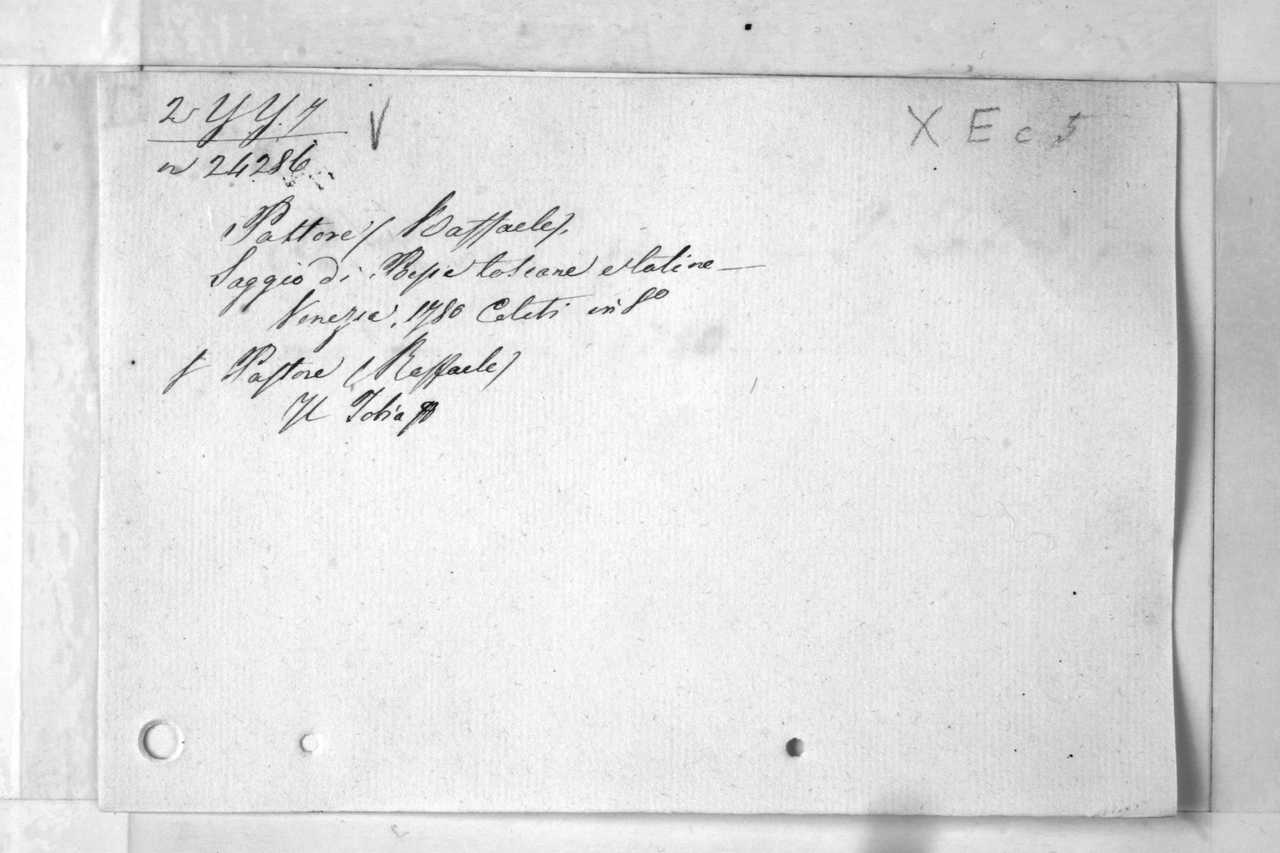 2 Y Y. 7
V
X E c 5
n 24286
Pastore (Raffaele).
Saggio di Poesie toscane e latine —
Venezia, 1780 Coleti in 8º
Pastore (Raffaele)
Il Tobia